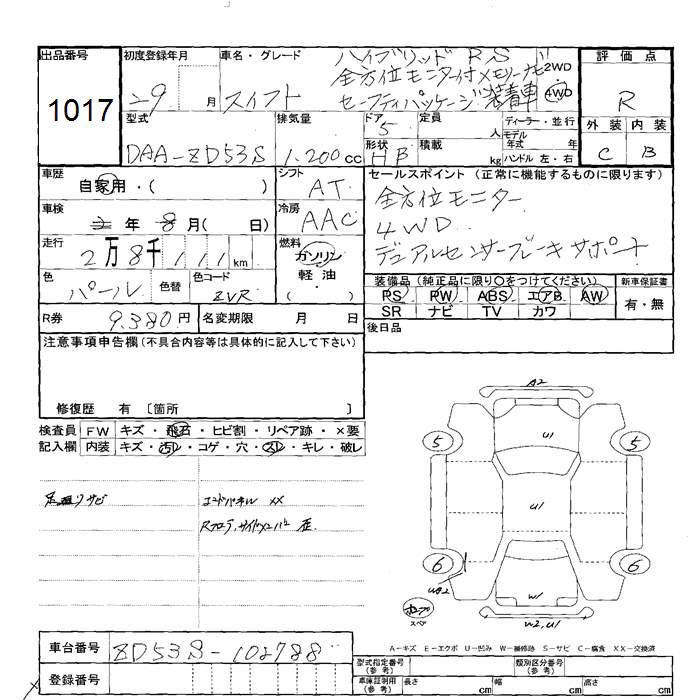 出品番号 初度登録年月 車名・グレード ハイブリッド RS 評価点
1017 29 月 スイフト 全方位モニター付メモリーナビ 2WD R
セーフティパッケージ装着車 4WD
型式 排気量 ドア 定員 ディーラー・並行 外装 内装
DAA-ZD53S 1.200cc 5 人 モデル 年式 年 C B
形状 積載 HB kg ハンドル 左・右
車歴 自家用・( ) シフト AT セールスポイント (正常に機能するものに限ります)
車検 年 8月( 日) 冷房 AAC 全方位モニター
4WD
走行 2万8千111km 燃料 ガソリン デュアルセンサーブレーキサポート
色 パール 色替 色コード ZVR 軽油 ( )
装備品 (純正品に限り○をつけてください) 新車保証書
PS PW ABS エアB AW 有・無
SR ナビ TV カワ
R券 9.380円 名変期限 月 日 後日品
注意事項申告欄(不具合内容等は具体的に記入して下さい)
修復歴 有 〔箇所 〕
検査員 FW キズ・飛石・ヒビ割・リペア跡・×要
記入欄 内装 キズ・汚レ・コゲ・穴・スレ・キレ・破レ
サビ エンドパネル XX
Rフロア、サイドメンバー 歪
A2
5 U1 5
U1
6 6
W1
スペア
W2,U1
A-キズ E-エクボ U-凹み W-補修跡 S-サビ C-腐食 XX-交換済
車台番号 ZD53S-102788
登録番号
型式指定番号 (参考) 類別区分番号 (参考)
車庫証明用 (参考) 長さ cm 幅 cm 高さ cm